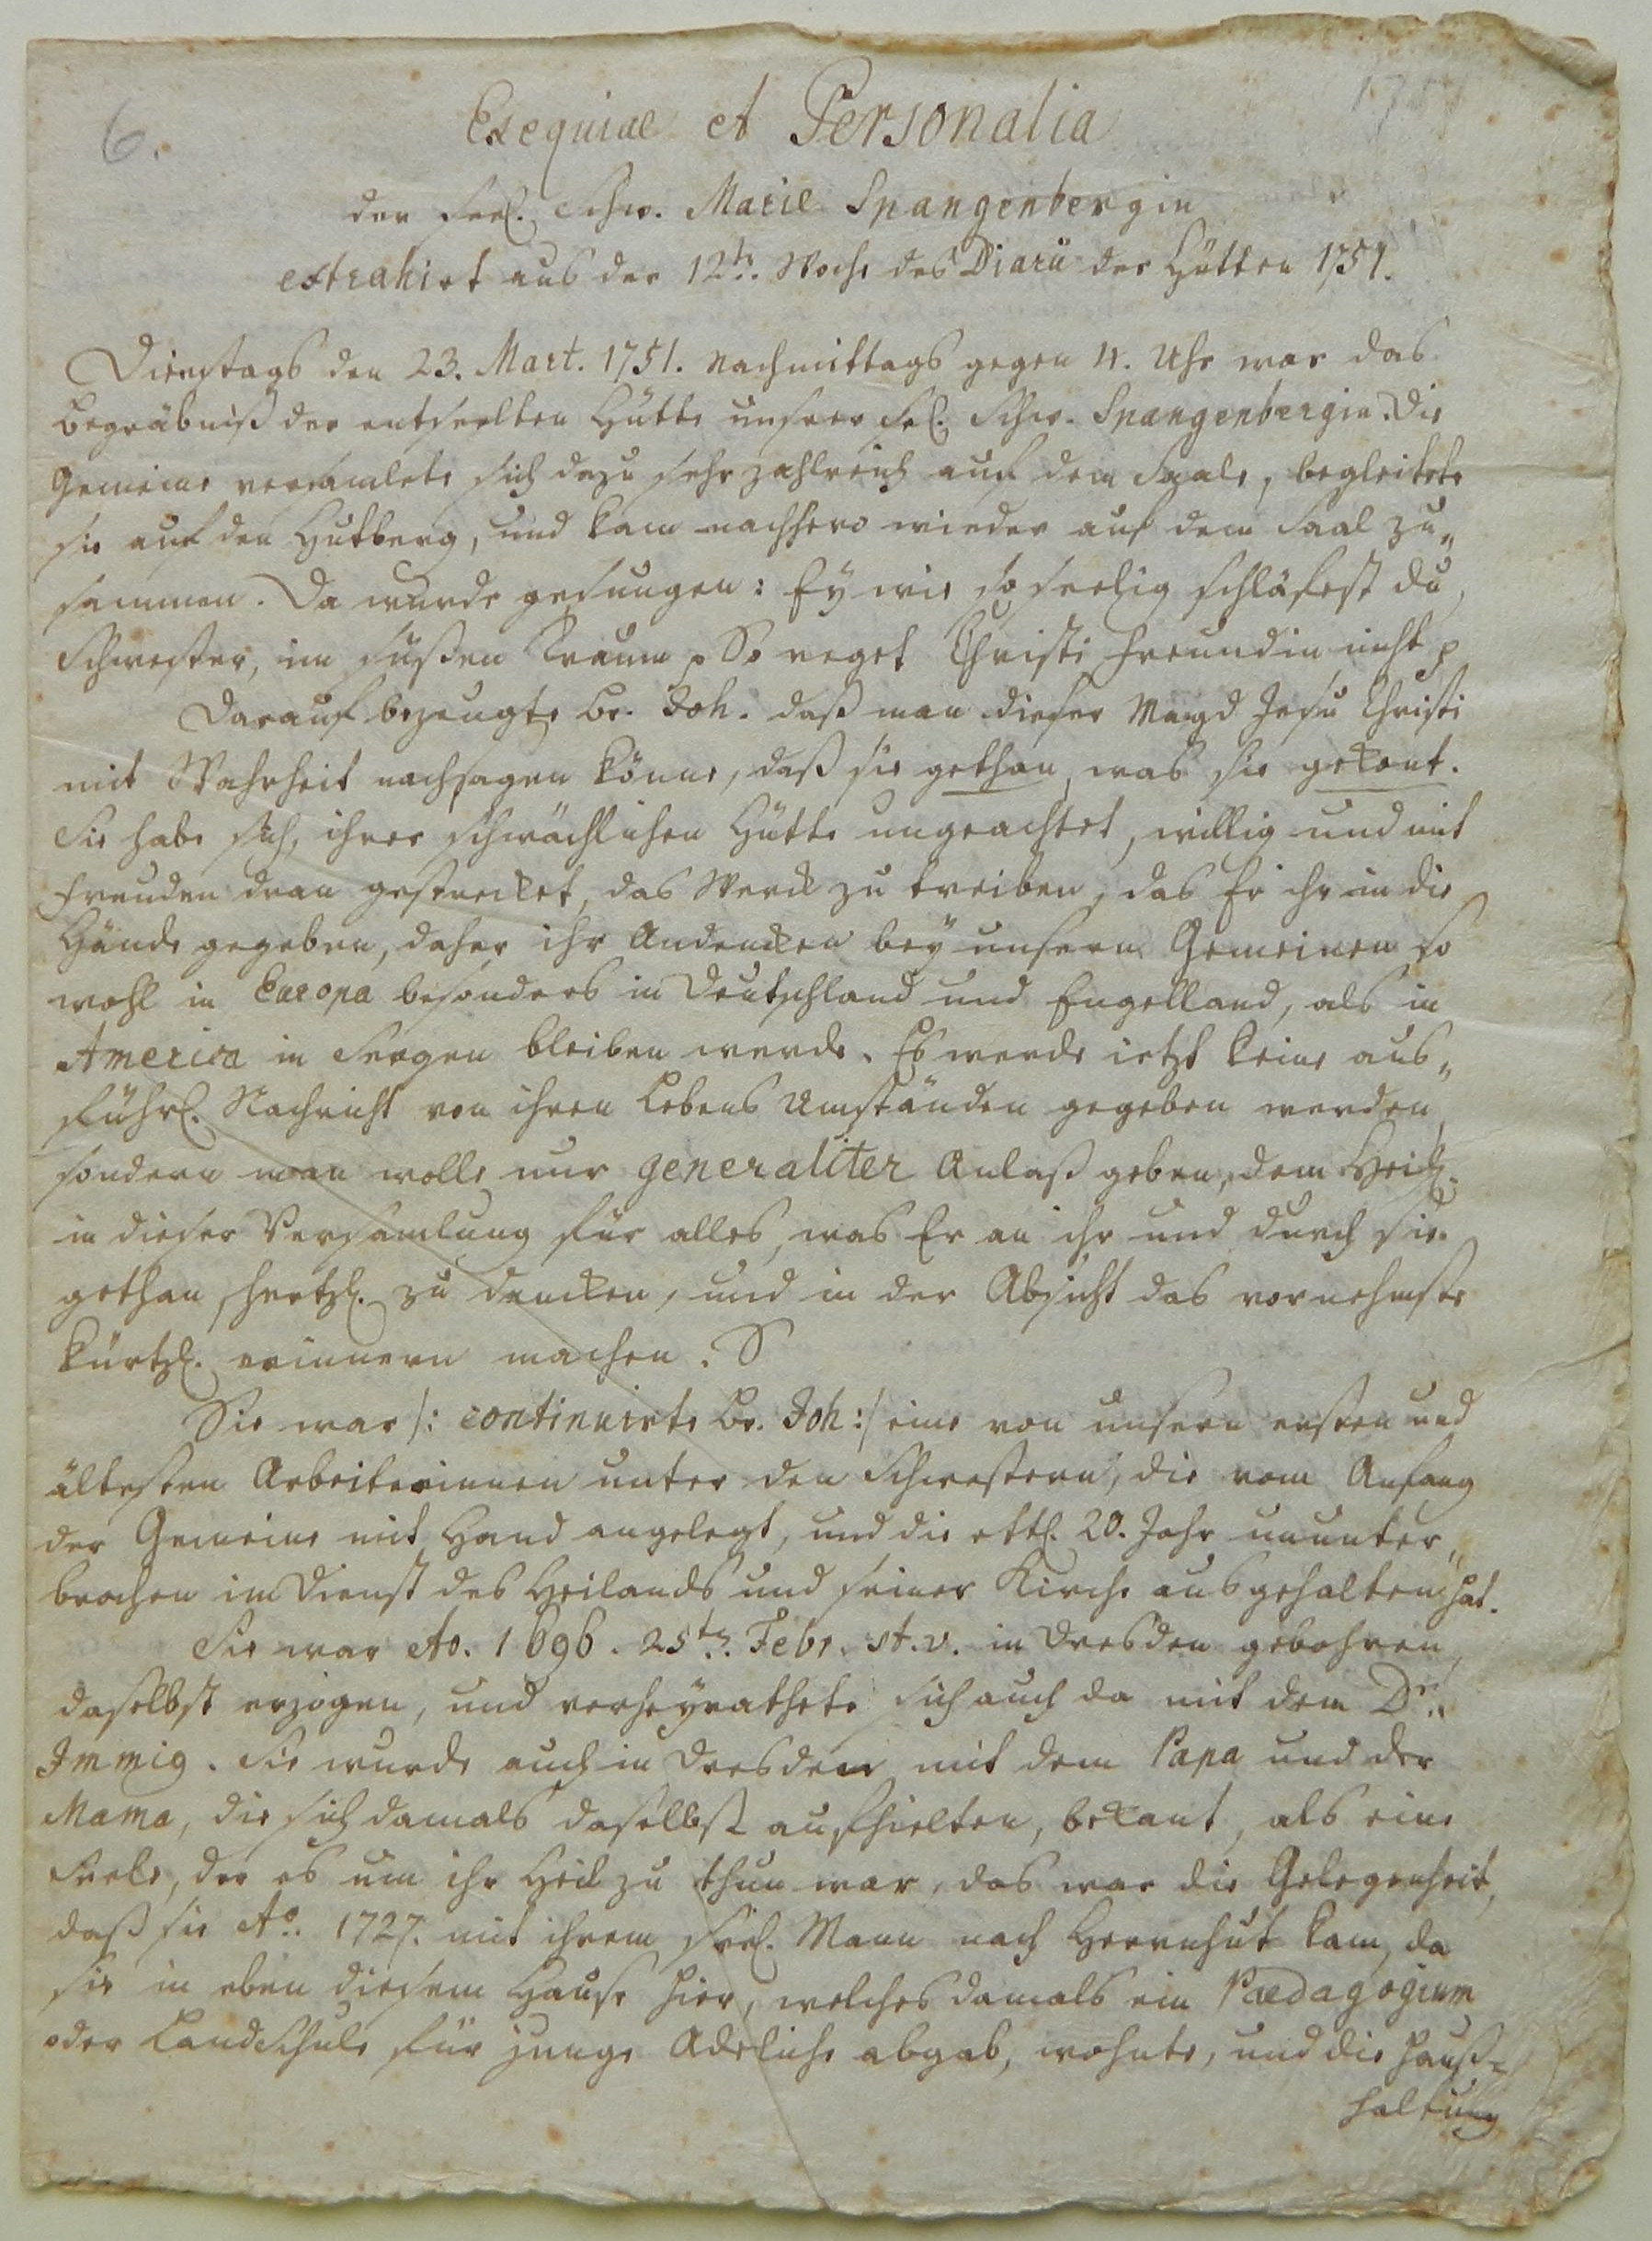 6.
1751
Exequiae et Personalia
der seel. Schw. Marie Spangenbergin
extrahirt aus der 12tn. Woche des Diarii der Hütten 1751.
Dienstags den 23. Mart. 1751. nachmittags gegen 4. Uhr war das
Begräbniß der entseelten Hütte unserer sel. Schw. Spangenbergin. Die
Gemeine versamlete sich dazu sehr zahlreich auf dem Saale, begleitete
sie auf den Hutberg, und kam nachhero wieder auf dem Saal zu„
sammen. Da wurde gesungen: Ey wie so seelig schläfest du,
Schwester, im süßen Traum p So reget Christi Freundin nicht p
Darauf bezeugte Br. Joh. daß man dieser Magd Jesu Christi
mit Wahrheit nachsagen könne, daß sie gethan, was sie gekont.
Sie habe sich, ihrer schwächlichen Hütte ungeachtet, willig und mit
Freuden dran gestrecket, das Werck zu treiben, das Er ihr in die
Hände gegeben, daher ihr Andencken bey unsern Gemeinen so
wohl in Europa besonders in Deutschland und Engelland, als in
America in Seegen bleiben werde. Es werde ietzt keine aus„
führl. Nachricht von ihren Lebens Umständen gegeben werden,
sondern man wolle nur generaliter Anlaß geben, dem Heil.
in dieser Versamlung für alles, was Er an ihr und durch sie
gethan, hertzl. zu dancken, und in der Absicht das vornehmste
kürtzl. erinnern machen.
Sie war /: continuirte Br. Joh :/ eine von unsern ersten und
ältesten Arbeiterinnen unter den Schwestern, die vom Anfang
der Gemeine mit Hand angelegt, und die ettl. 20. Jahr ununter„
brochen im Dienst des Heilands und seiner Kirche ausgehalten hat.
Sie war Ao. 1696. 25tn. Febr. st. v. in Dresden gebohren,
daselbst erzogen, und verheyrathete sich auch da mit dem Dr.
Immig. Sie wurde auch in Dresden mit dem Papa und der
Mama, die sich damals daselbst aufhielten, bekant, als eine
Seele, der es um ihr Heil zu thun war, das war die Gelegenheit,
daß sie Ao. 1727. mit ihrem seel. Mann nach Herrnhut kam, da
sie in eben diesem Hause hier, welches damals ein Paedagogium
oder Landschule für junge Adeliche abgab, wohnte, und die Hauß-
haltung